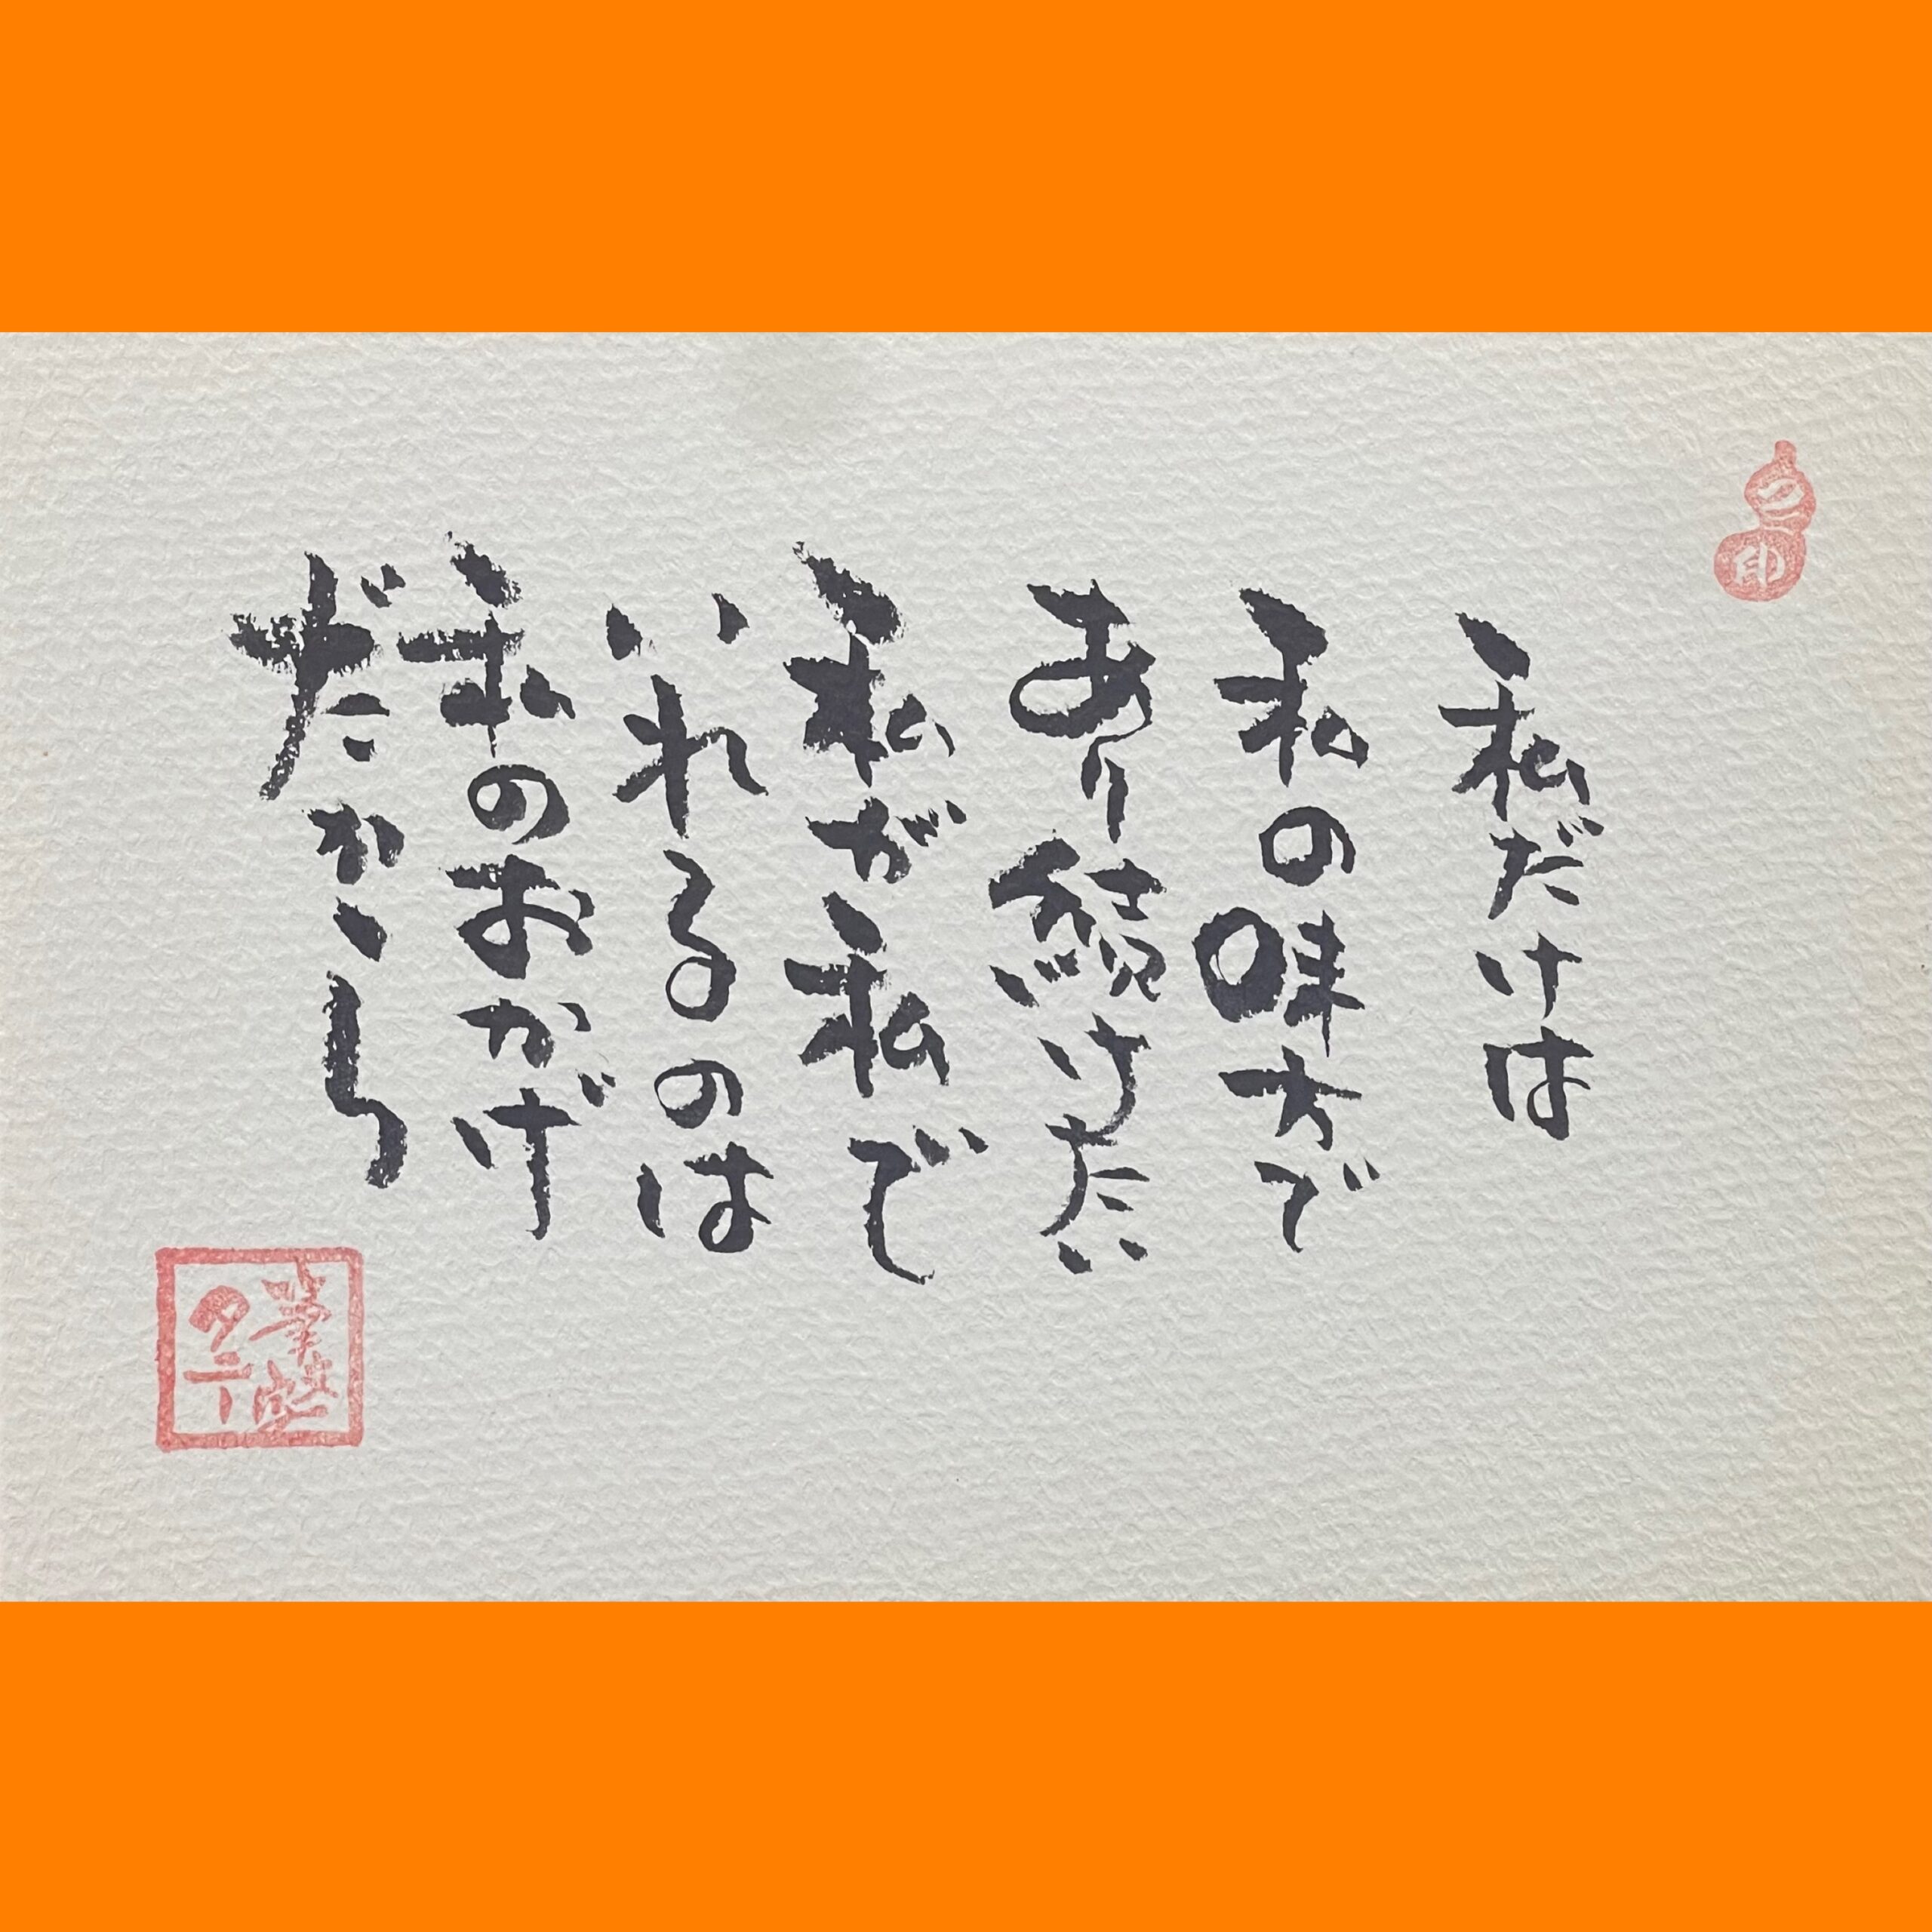 私だけは
私の味方で
あり続けたい
私が私で
いれるのは
私のおかげ
だから
タニー